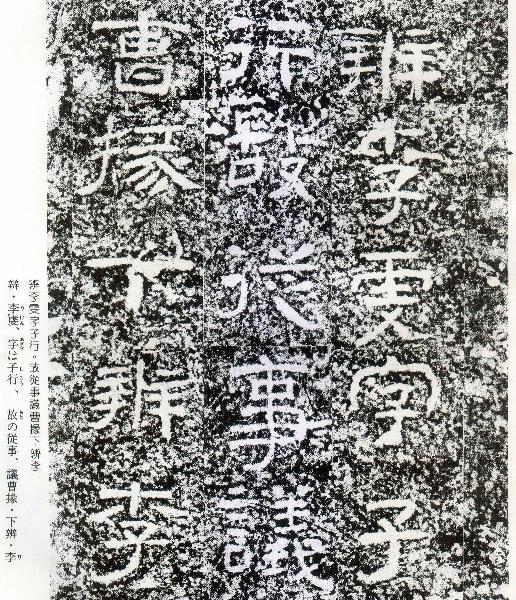 辨李虔字子
行故從事議
曹掾下辨李
辨李虔字子行。故從事議曹掾下辨李
辯・李虔、字は子行、故の従事、議曹掾・下辨・李